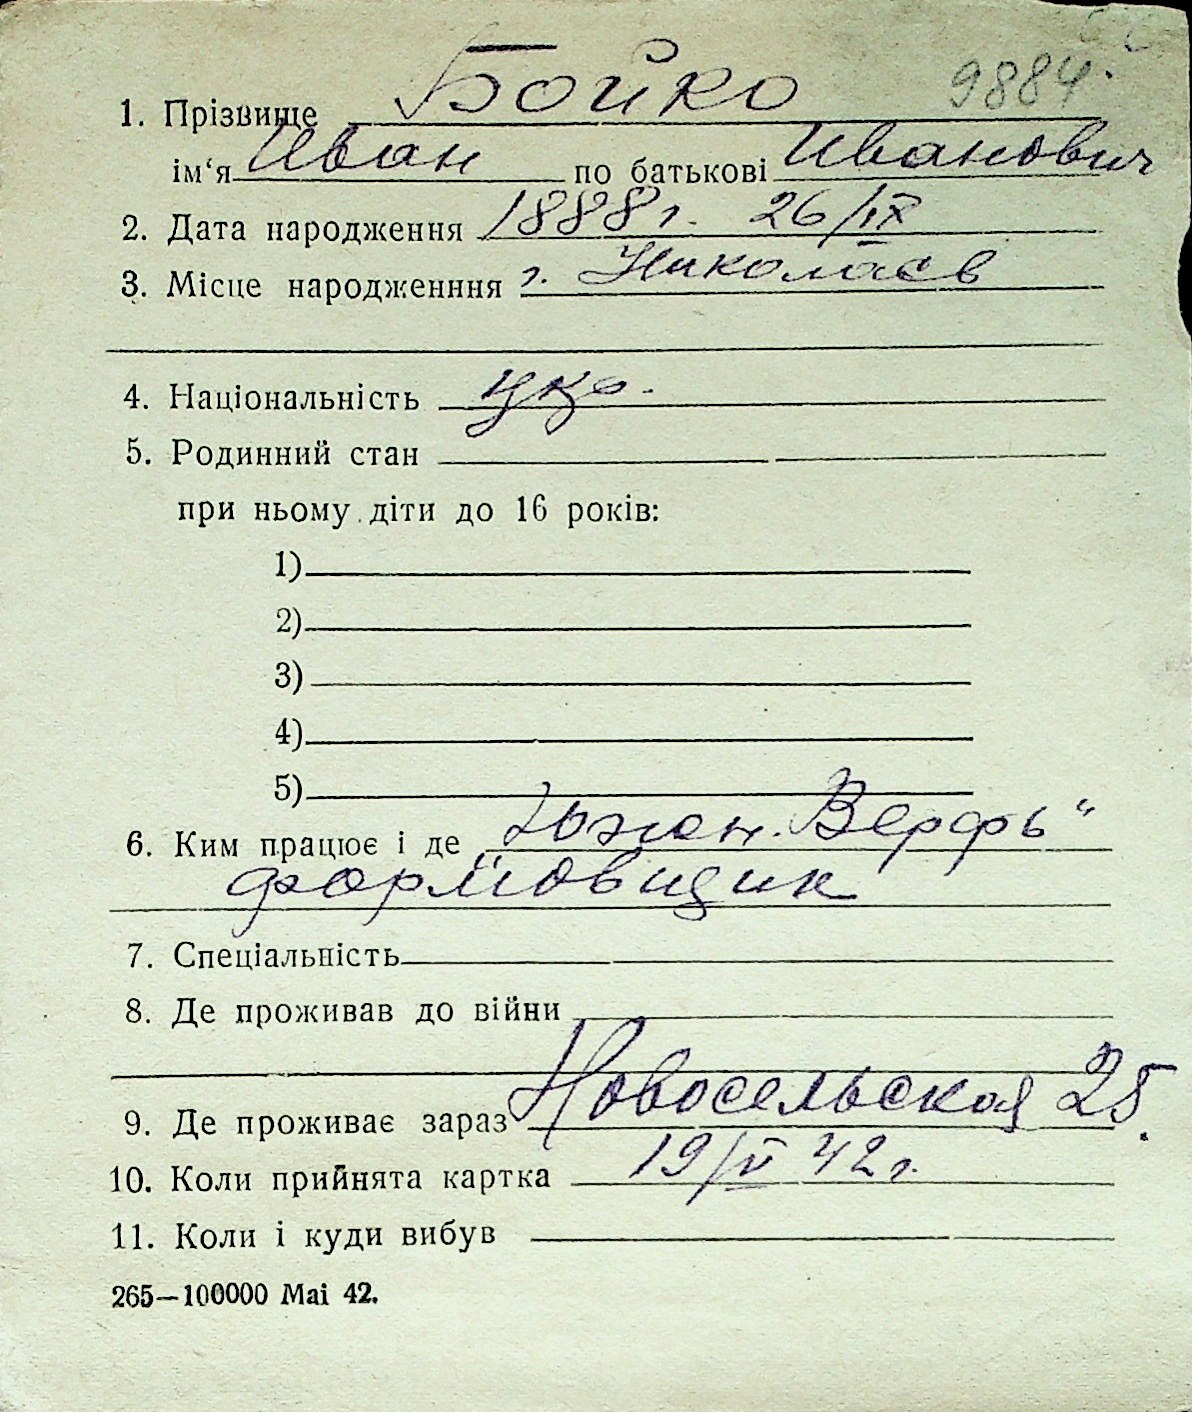 9884.
1. Прізвище Бойко
ім‘я Иван по батькові Иванович
2. Дата народження 1888 г. 26/IX
3. Місце народженння г. Николаев
4. Національність укр.
5. Родинний стан
при ньому діти до 16 років:
1)
2)
3)
4)
5)
6. Ким працює і де „Южн. Верфь“
формовщик
7. Спеціальність
8. Де проживав до війни
9. Де проживає зараз Новосельская 25.
10. Коли прийнята картка 19/V 42 г.
11. Коли і куди вибув
265—100000 Mai 42.